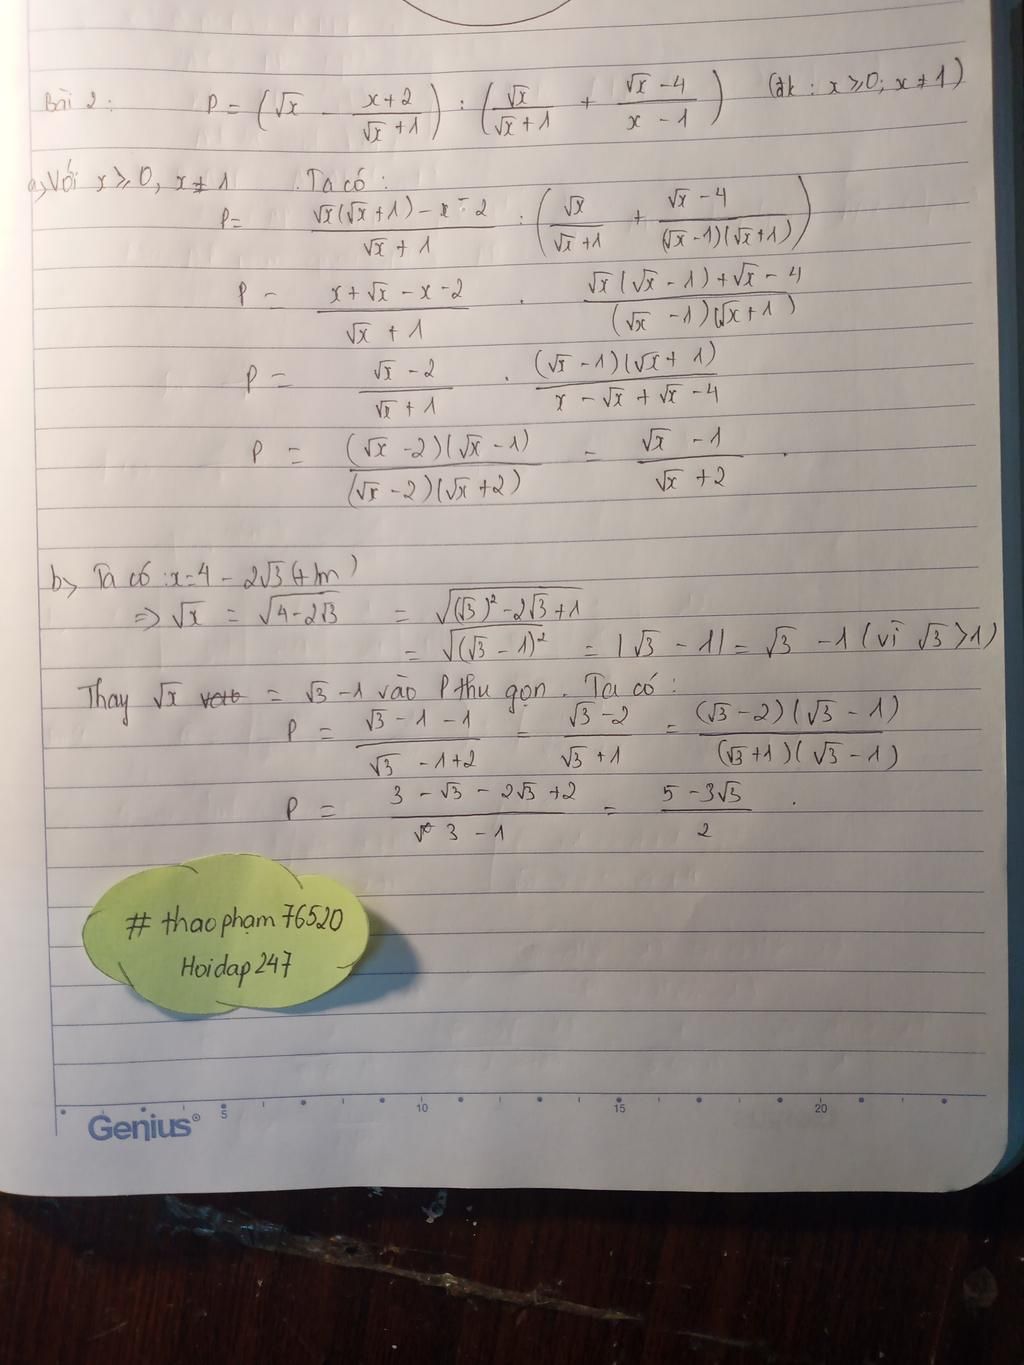 Bài 2: P = (√x - (x+2)/(√x+1)) : (√x/(√x+1) + (√x-4)/(x-1)) (đk : x ≥ 0; x ≠ 1)
a, Với x ≥ 0, x ≠ 1 . Ta có :
P = (√x(√x+1) - x - 2)/(√x+1) : (√x/(√x+1) + (√x-4)/((√x-1)(√x+1)))
P = (x+√x-x-2)/(√x+1) . (√x(√x-1)+√x-4)/((√x-1)(√x+1))
P = (√x-2)/(√x+1) . ((√x-1)(√x+1))/(x-√x+√x-4)
P = ((√x-2)(√x-1))/((√x-2)(√x+2)) = (√x-1)/(√x+2) .
b, Ta có : x = 4 - 2√3 (tm)
=> √x = √(4-2√3) = √((√3)²-2√3+1)
= √((√3-1)²) = |√3-1| = √3-1 (vì √3 > 1)
Thay √x = √3-1 vào P thu gọn . Ta có :
P = (√3-1-1)/(√3-1+2) = (√3-2)/(√3+1) = ((√3-2)(√3-1))/((√3+1)(√3-1))
P = (3-√3-2√3+2)/(3-1) = (5-3√3)/2 .
# thaophạm76520
Hoidap247
Genius®
5 10 15 20